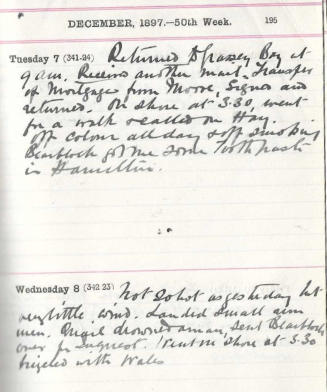 DECEMBER, 1897.—50th Week. 195
Tuesday 7 (341-24) Returned Grassy Bay at
9 a.m. Received another mail. Transfer
of Mortgage from Moore, Signed and
returned. On shore at 3.30, went
for a walk & called on Hay.
off colour all day & off smoking
got me some tooth paste
in Hamilton.
Wednesday 8 (342-23) Not so hot as yesterday but
very little wind. Landed small arm
men. drowned a man, sent
over for Inquest. Went on shore at 3.30
with Wales